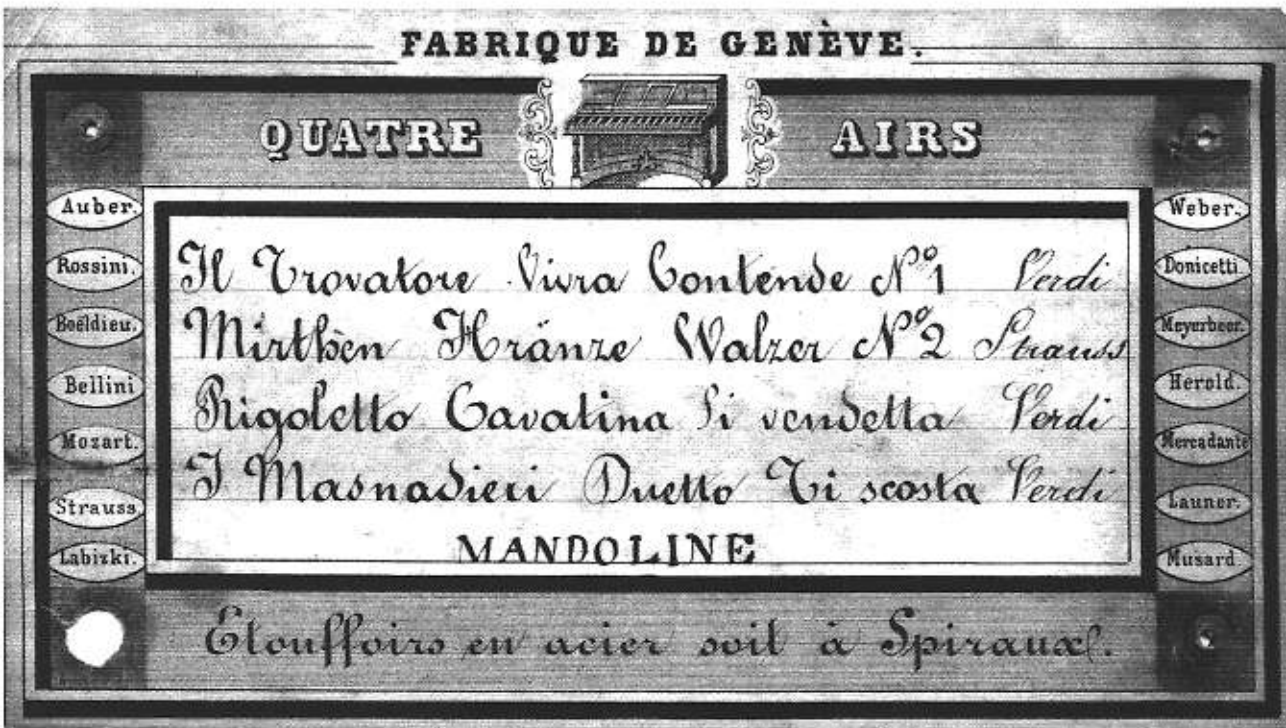 FABRIQUE DE GENÈVE.
QUATRE AIRS
Auber.
Rossini.
Boëldieu.
Bellini
Mozart.
Strauss
Labizki.
Il Trovatore Vivra Contende Nº1 Verdi
Mirthen Kränze Walzer Nº2 Strauss
Rigoletto Cavatina Si vendetta Verdi
I Masnadieri Duetto Ti scosta Verdi
MANDOLINE
Weber.
Donicetti.
Meyerbeer.
Herold.
Mercadante
Launer.
Musard.
Etouffoirs en acier soit à Spiraux.